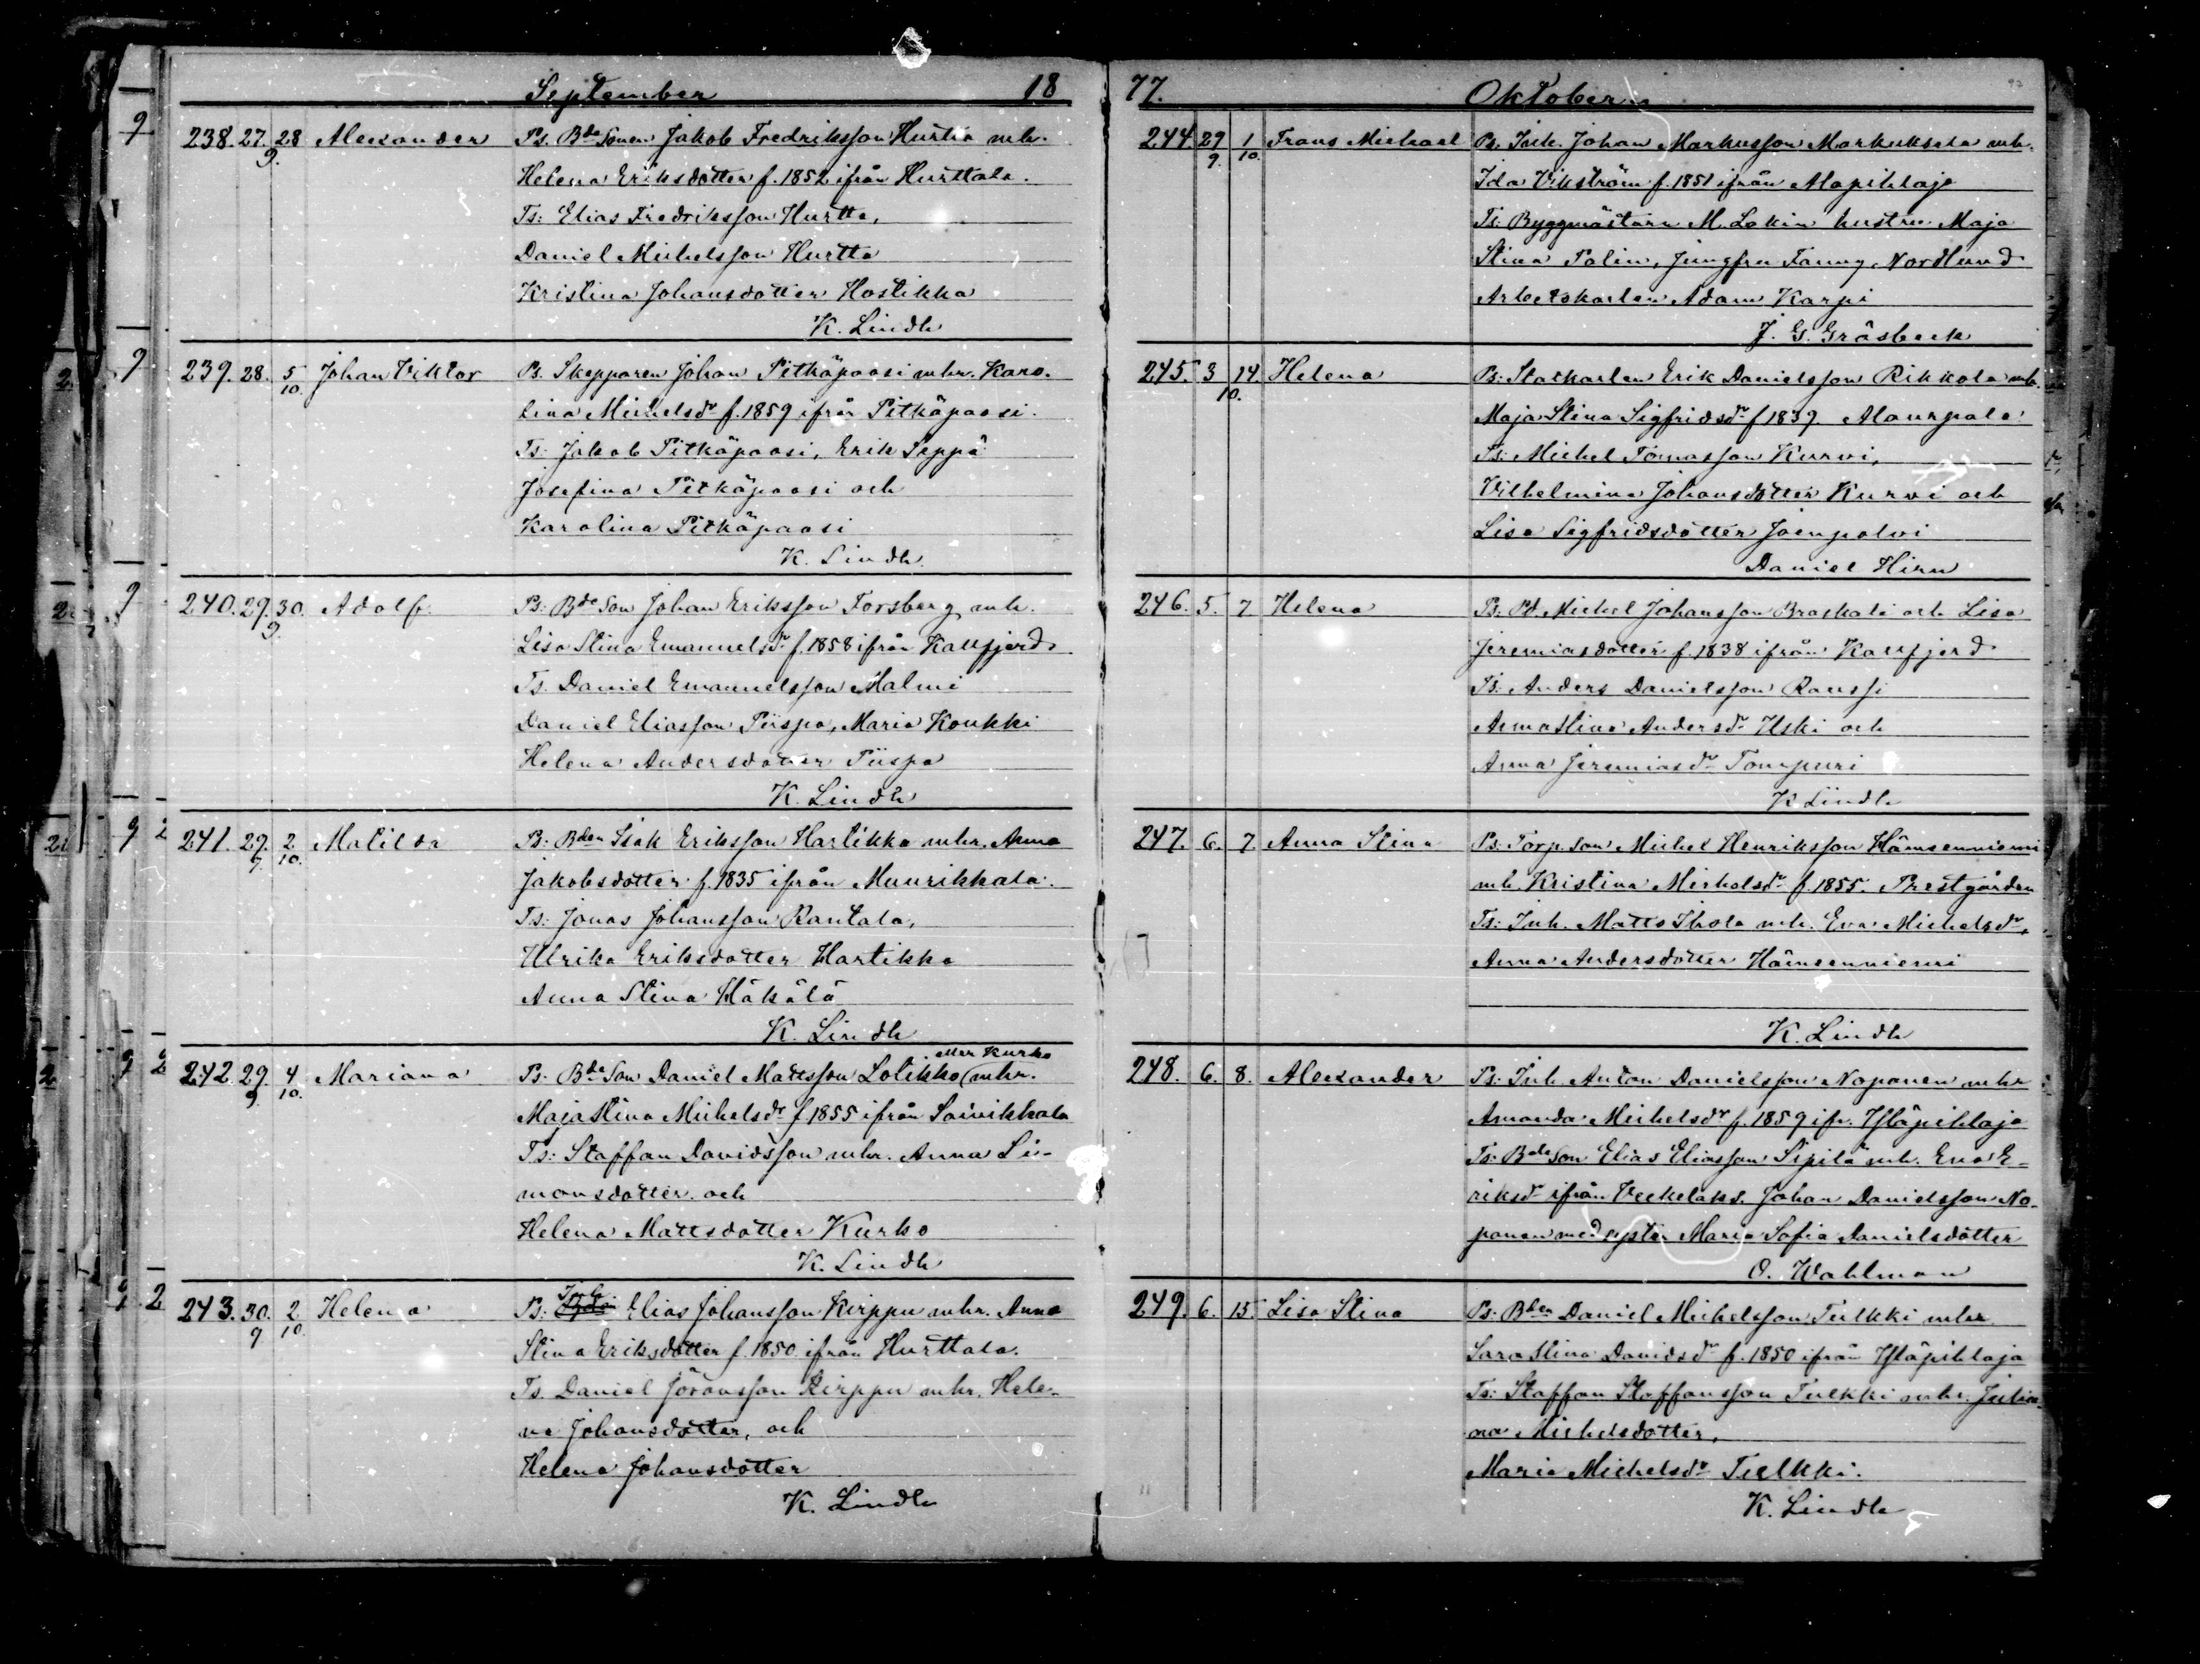 September 18
238. 27. 28 Alexander Ps. Bde Sonen Jakob Fredriksson Hurtta mhr.
9.
Helena Eriksdotter f. 1852 ifrån Hurttala.
Ts: Elias Fredriksson Hurtta,
Daniel Michelsson Hurtta
Kristina Johansdotter Hostikka
K. Lindh
239. 28. 5 Johan Viktor Ps. Skepparen Johan Pitkäpaasi mhr. Karo-
10.
lina Michelsdr f. 1859 ifrån Pitkäpaasi.
Ts: Jakob Pitkäpaasi, Erik Seppä
Josefina Pitkäpaasi och
Karolina Pitkäpaasi
K. Lindh.
240. 29. 30. Adolf Ps: Bde Son Johan Eriksson Forsberg mh.
9.
Lisa Stina Emanuelsdr f. 1858 ifrån Kallfjerd.
Ts. Daniel Emanuelsson Malmi
Daniel Eliasson Piispa, Maria Koukki
Helena Andersdotter Piispa
K. Lindh
241. 29. 2 Matilda Ps: Bden Isak Eriksson Hartikka mhr. Anna
9. 10.
Jakobsdotter f. 1835 ifrån Muurikkala.
Ts: Jonas Johansson Rantala,
Ulrika Eriksdotter Hartikka
Anna Stina Häkälä
K. Lindh
eller Kurko
242. 29. 4 Mariana Ps: Bde Son Daniel Mattsson Lolikko (mhr.
9. 10.
Maja Stina Michelsdr f. 1855 ifrån Saivikkala
Ts: Staffan Davidsson mhr. Anna Si-
monsdotter. och
Helena Mattsdotter Kurko
K. Lindh
Inh.
243. 30. 2 Helena Ps: Bden Elias Johansson Kirppu mhr. Anna
9 10.
Stina Eriksdotter f. 1850 ifrån Hurttala.
Ts. Daniel Göransson Kirppu mhr. Hele-
na Johansdotter, och
Helena Johansdotter
K. Lindh
77. Oktober
244. 29 1 Frans Michael Ps. Inh. Johan Markusson Markuksela mh.
9. 10.
Ida Vikström f. 1851 ifrån Alapihlaja
Ts: Byggmästarn M. Lekin hustru Maja
Stina Palin, Jungfru Fanny Nordlund
Arbetskarlen Adam Karpi
J. G. Gråsbeck
245. 3 14. Helena Ps: Statkarlen Erik Danielsson Rikkola mh.
10.
Maja Stina Sigfridsdr f 1839. Alaurpala
Ts: Michel Tomasson Kurvi,
Vilhelmina Johansdotter Kurvi och
Lisa Sigfridsdotter Joenpolvi
Daniel Hirn
246. 5. 7 Helena Ps: Pd. Michel Johansson Braskali och Lisa
Jeremiasdotter f. 1838 ifrån Kallfjerd
Ts: Anders Danielsson Ranssi
Anna Stina Andersdr Uski och
Anna Jeremiasdr Tompuri
K Lindh
247. 6. 7. Anna Stina Ps: Torp. Son Michel Henriksson Hämeenniemi
mh. Kristina Michelsdr f. 1855. Prestgården
Ts: Inh. Matts Ihola mh. Eva Michelsdr,
Anna Andersdotter Hämeenniemi
K. Lindh
248. 6. 8. Alexander Ps: Inh. Anton Danielsson Noponen mhr
Amanda Michelsdr f. 1859 ifr. Ylläpihlaja
Ts: Bde Son Elias Eliasson Sipilä mh. Eva E-
riksdr ifrån Veckelaks. Johan Danielsson No-
ponen med syster Maria Sofia Danielsdotter
O. Wahlman
249. 6. 15. Lisa Stina Ps: Bden Daniel Michelsson Tulkki mhr
Sara Stina Davidsdr f. 1850 ifrån Ylläpihlaja
Ts: Staffan Staffansson Tulkki mhr. Julia-
na Michelsdotter,
Maria Michelsdr Tulkki.
K. Lindh